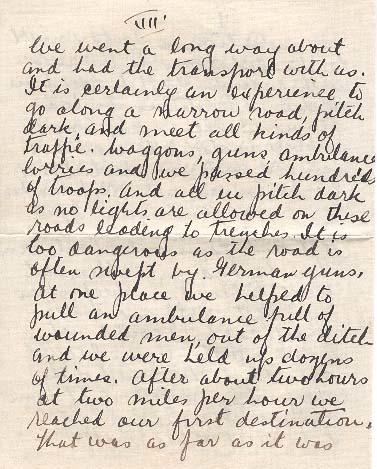 VIII
We went a long way about
and had the transport with us.
It is certainly an experience to
go along a narrow road, pitch
dark, and meet all kinds of
traffic. Waggons, guns, ambulance
lorries and we passed hundreds
of troops, and all in pitch dark
as no lights are allowed on these
roads leading to trenches. It is
too dangerous as the road is
often swept by German guns.
At one place we helped to
pull an ambulance full of
wounded men, out of the ditch
and we were held up dozens
of times. After about two hours
at two miles per hour we
reached our first destination.
That was as far as it was